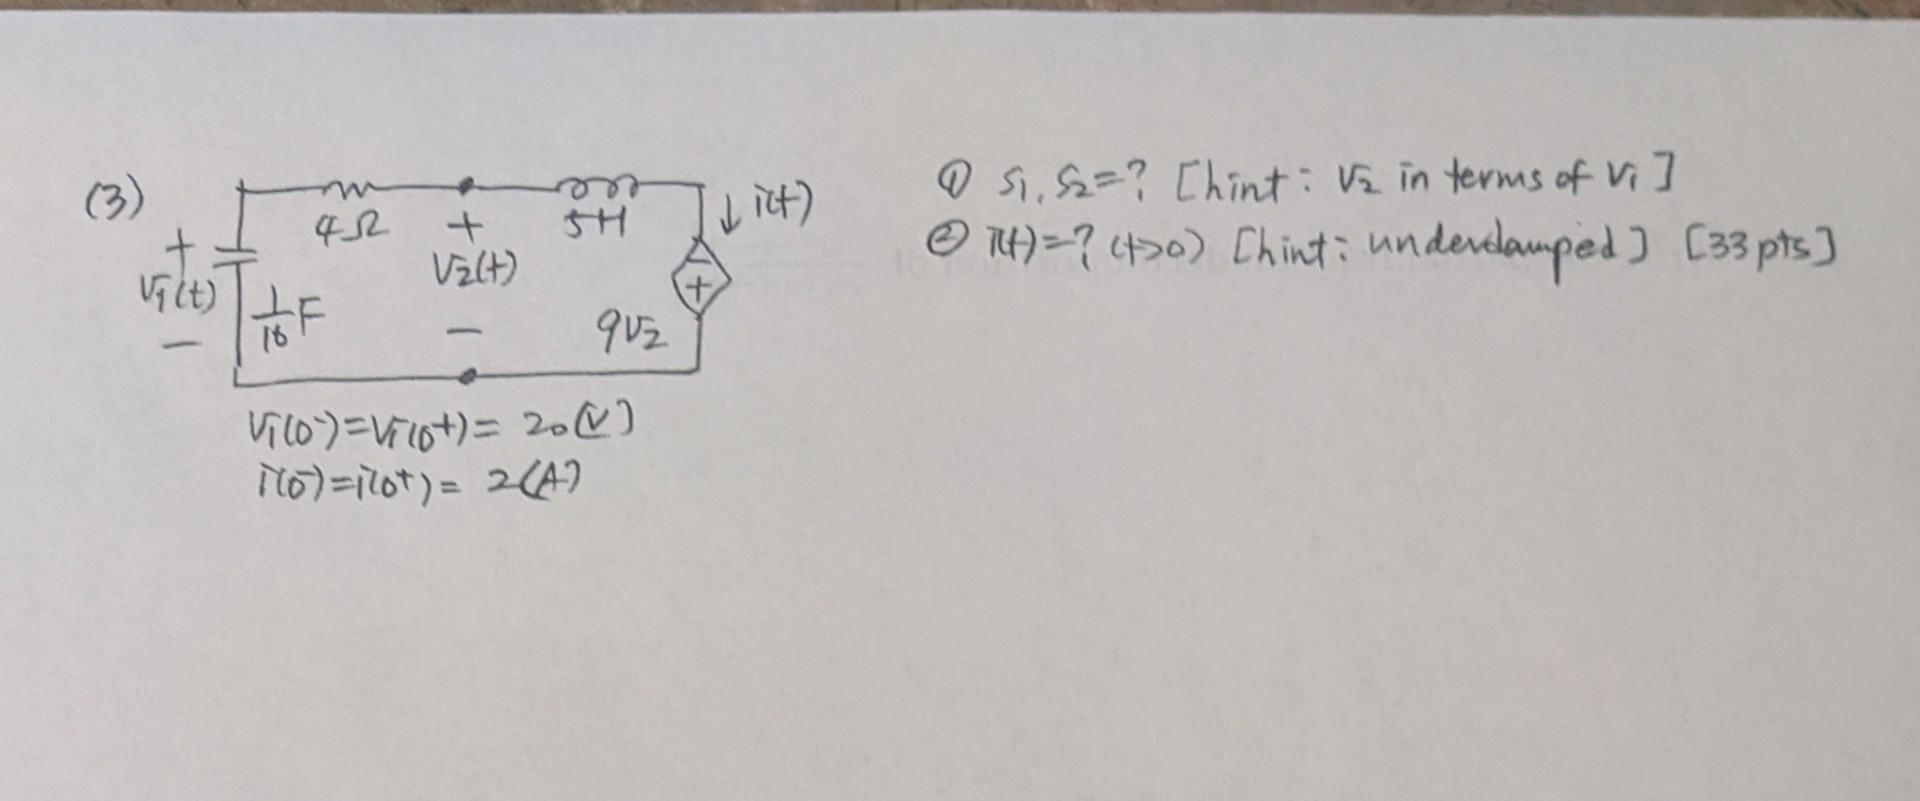 (3)
4Ω
+
5H
↓ i(t)
+
V₁(t)
−
1/16 F
V₂(t)
−
+
9V₂
V₁(0⁻)=V₁(0⁺)= 20(V)
i(0⁻)=i(0⁺)= 2(A)
① S₁, S₂=? [hint: V₂ in terms of V₁]
② i(t)=? (t>0) [hint: underdamped] [33 pts]